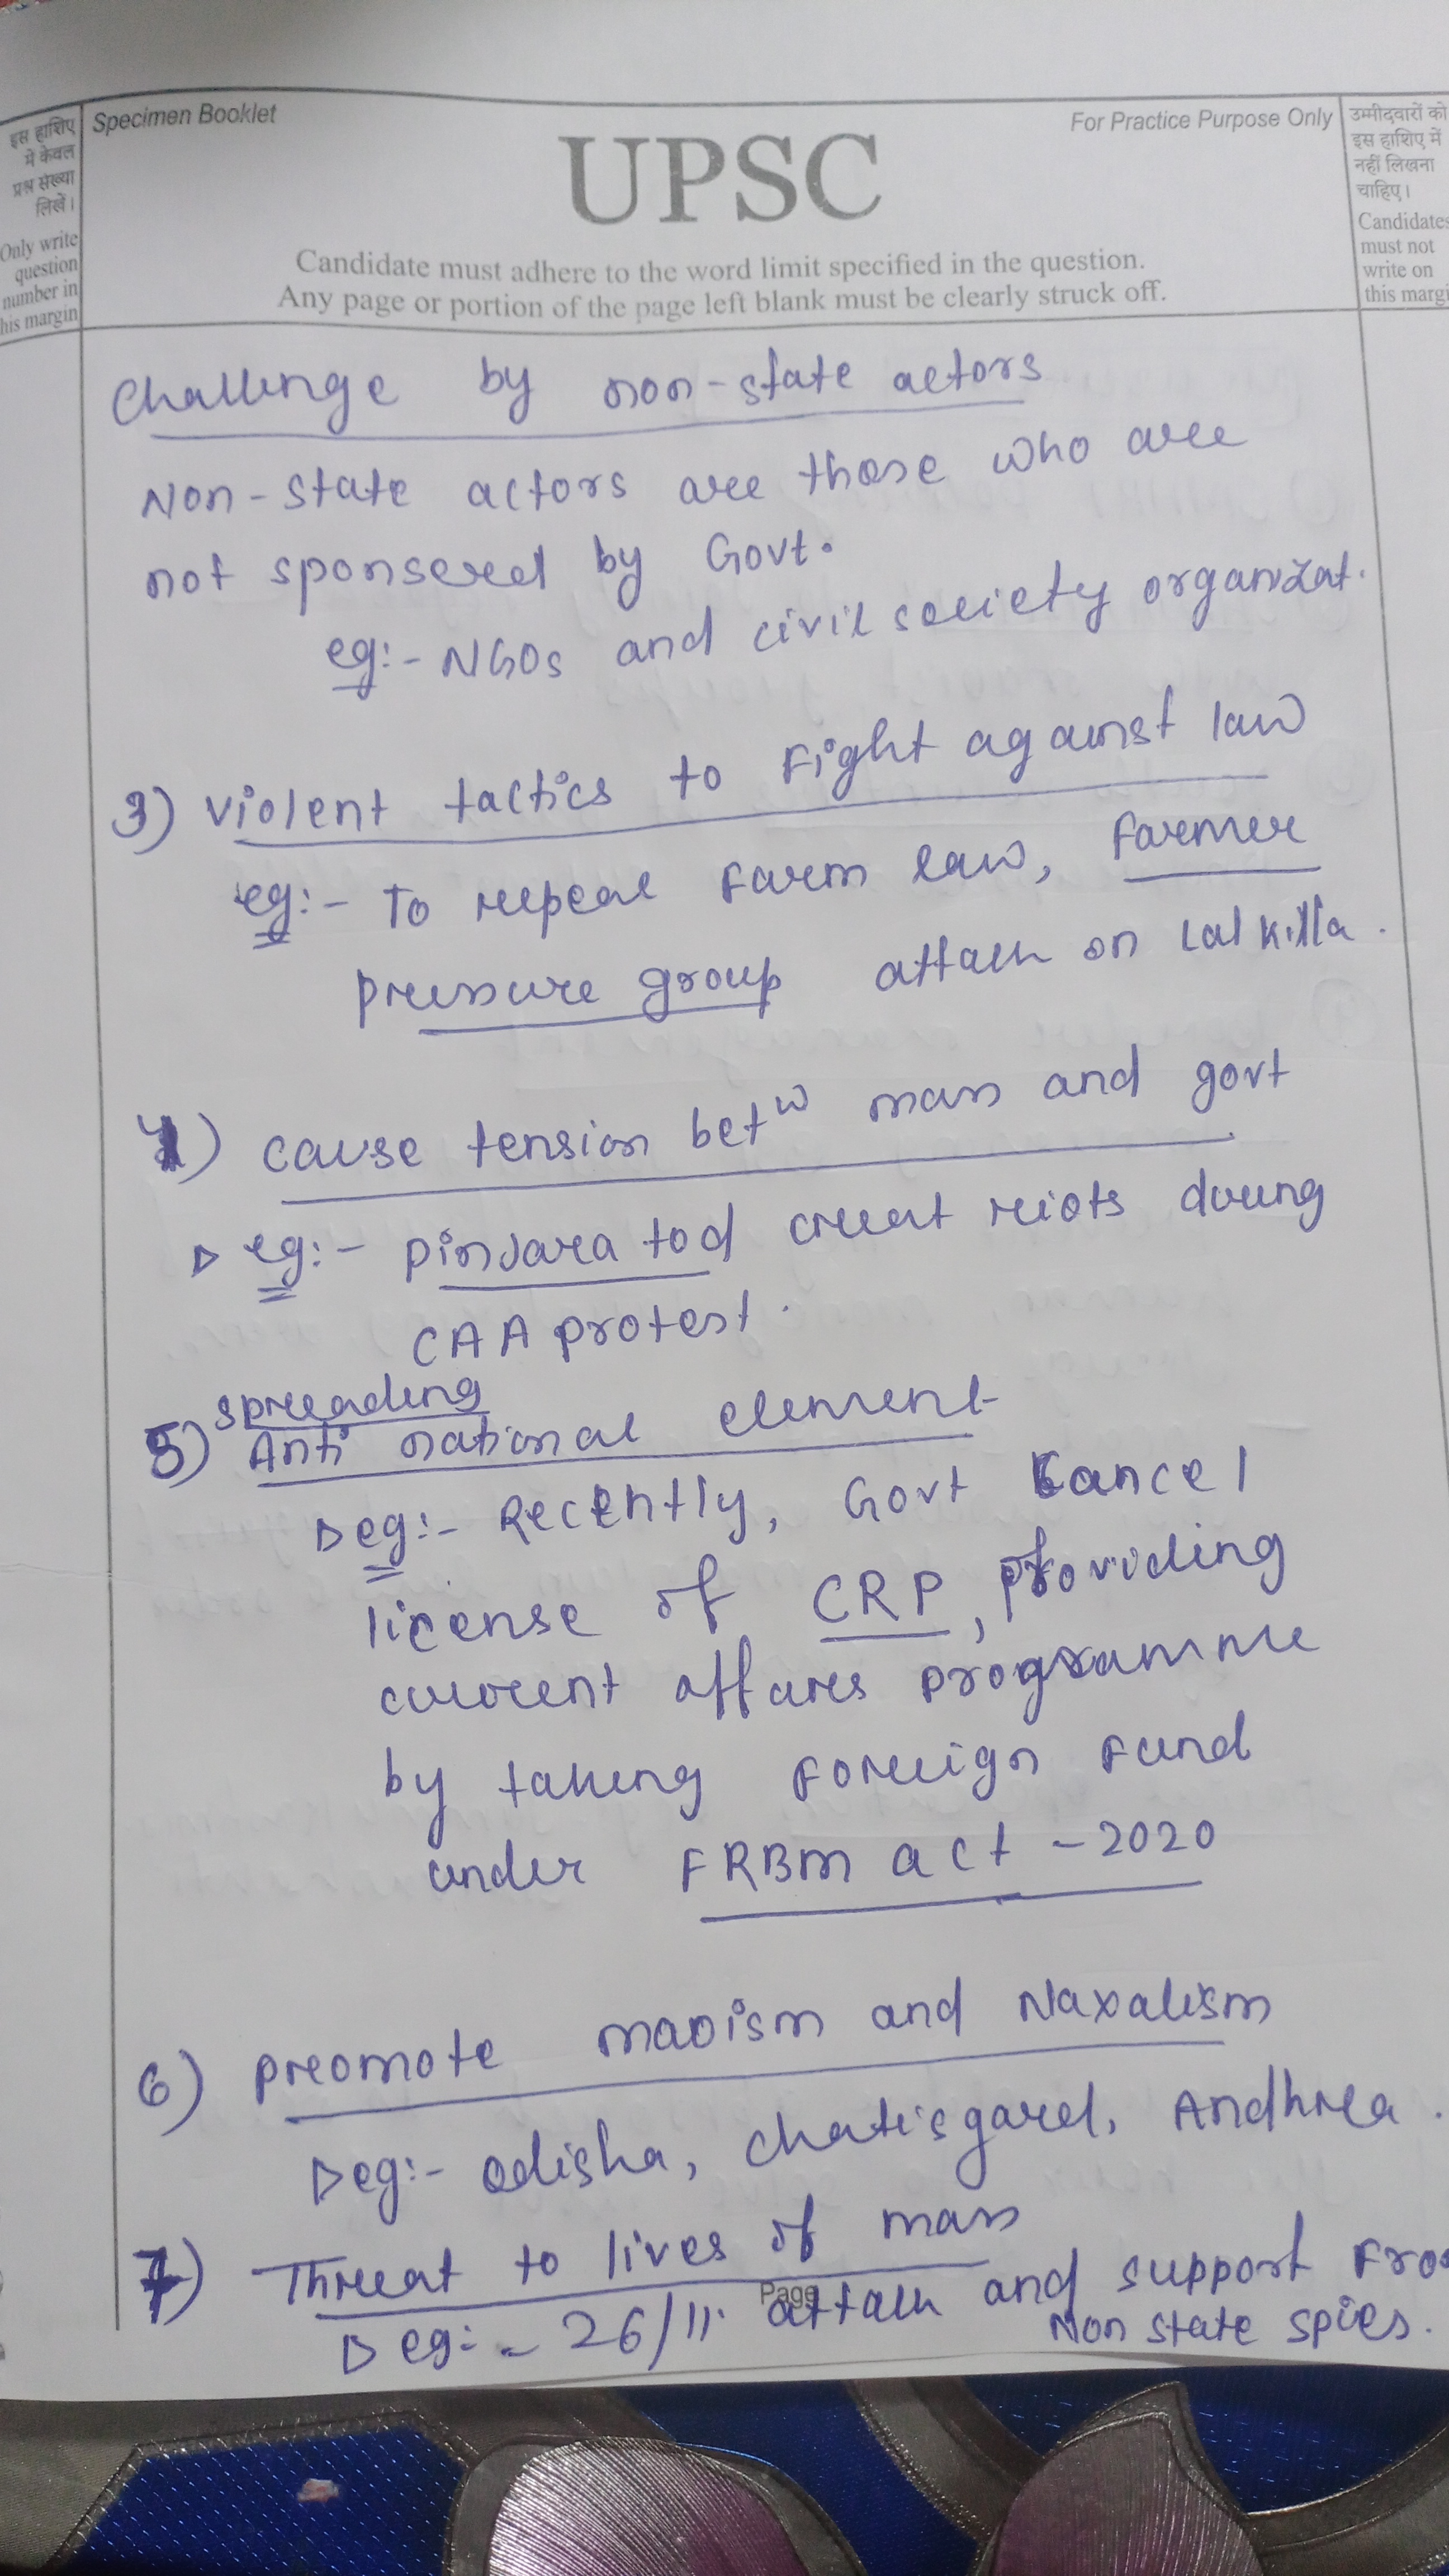 इस हाशिए
में केवल
प्रश्न संख्या
लिखें।
Only write
question
number in
his margin
Specimen Booklet
For Practice Purpose Only
UPSC
Candidate must adhere to the word limit specified in the question.
Any page or portion of the page left blank must be clearly struck off.
उम्मीदवारों को
इस हाशिए में
नहीं लिखना
चाहिए।
Candidates
must not
write on
this margi
Challenge by non-state actors
Non-state actors are those who are
not sponsered by Govt.
eg:- NGOs and civil society organizat.
3) violent tactics to Fight against law
eg:- To repeal Farm law, farmer
pressure group attack on Lal killa.
4) cause tension betw mass and govt
eg:- pinjara tod creat riots during
CAA protest.
5) spreading
Anti national element
eg:- Recently, Govt cancel
license of CRP, providing
current affares programme
by taking Foreign Fund
under FRBM act - 2020
6) Preomote maoism and Naxalism
eg:- Odisha, Chatisgard, Andhra.
7) Threat to lives of mass
eg:- 26/11 attack and support Fro
Non state spies.
Page